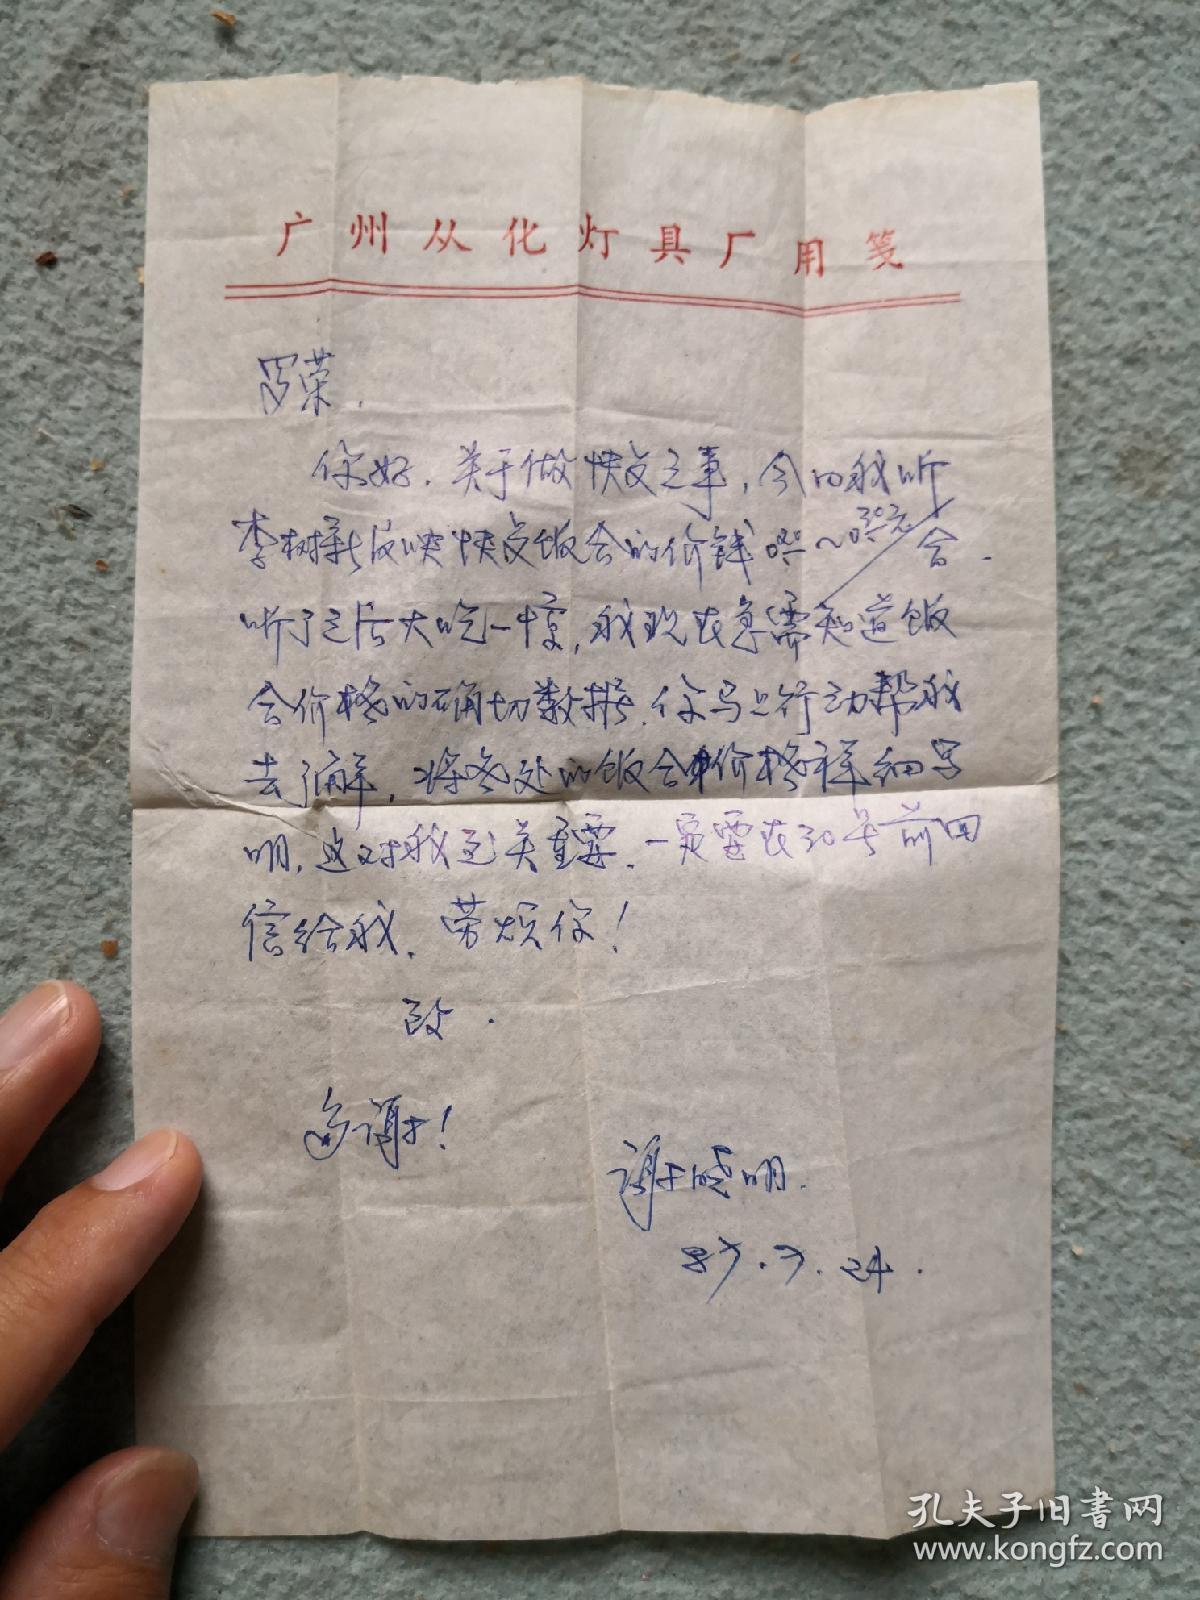 广州从化灯具厂用笺
罗荣.
你好. 关于做快点之事, 今日我听
李树新反映快点饭合的价钱 元/合.
听了之后大吃一惊, 我现在急需知道饭
合价格的确切数据. 你马上行动帮我
去了解, 将各处的饭合价格详细写
明, 这对我至关重要. 一定要在30号前回
信给我. 劳烦你!
致.
多谢!
谢晓明.
87.7.24.
孔夫子旧书网
www.kongfz.com